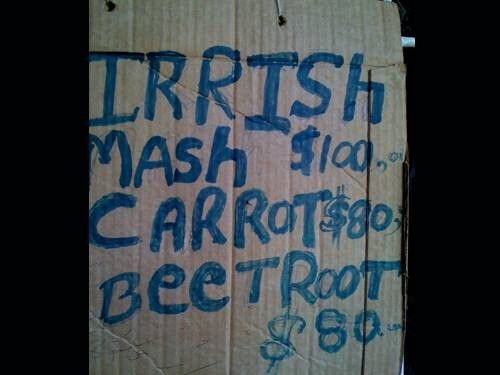 IRRISh
MASh $100.01
CARROT $80
BeeTROOT
$80